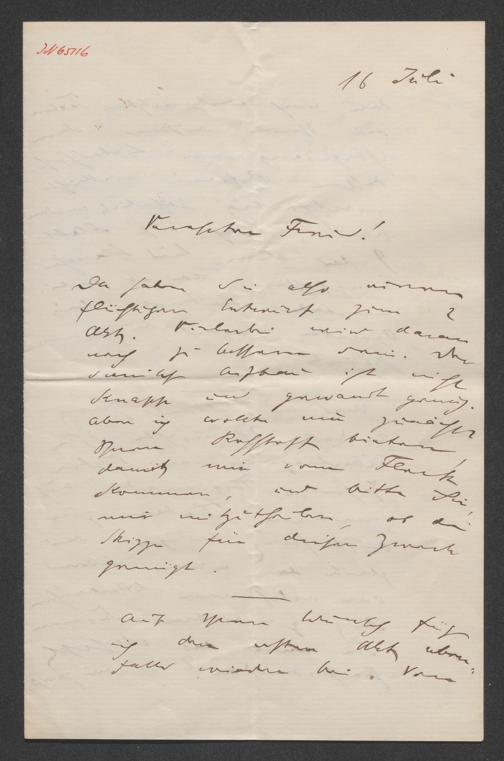 IN 65116
16 Juli
Verehrter Freund!
Da haben Sie also meinen
flüchtigen Entwurf zum 2
Akt. Vielerlei wird daran
noch zu bessern sein. Der
scenische Aufbau ist nicht
knapp und gewandt genug.
aber ich wollte nur zunächst
Ihnen Rohstoff bieten
damit wir vom Fleck
kommen, und bitte Sie,
mir mitzutheilen, ob die
Skizze für diesen Zweck
genügt.
Auf Ihren Wunsch füg
ich den ersten Akt eben-
falls wieder bei. Vom